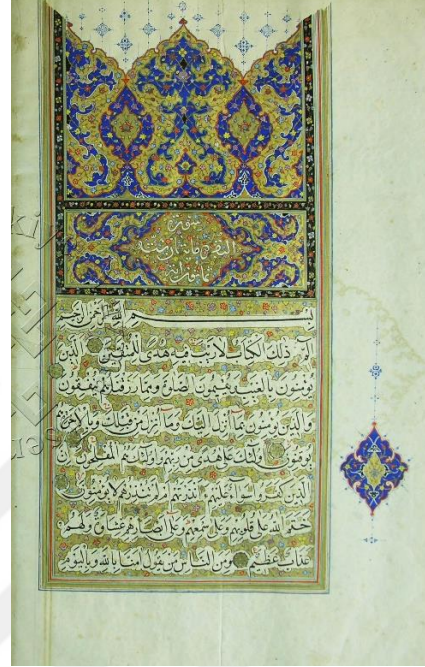 سورة
البقرة مائتان وستة
وثمانون آية
بسم الله الرحمن الرحيم
الم ذلك الكتاب لا ريب فيه هدى للمتقين الذين
يؤمنون بالغيب ويقيمون الصلوة ومما رزقناهم ينفقون
والذين يؤمنون بما أنزل إليك وما أنزل من قبلك وبالآخرة هم
يوقنون أولئك على هدى من ربهم وأولئك هم المفلحون إن
الذين كفروا سواء عليهم أأنذرتهم أم لم تنذرهم لا يؤمنون
ختم الله على قلوبهم وعلى سمعهم وعلى أبصارهم غشاوة ولهم
عذاب عظيم ومن الناس من يقول آمنا بالله وباليوم